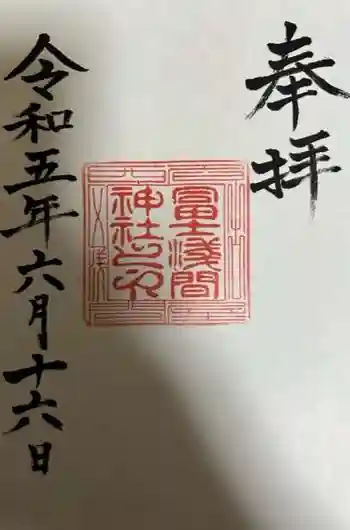 奉拝
冨士浅間
神社之印
令和五年六月十六日